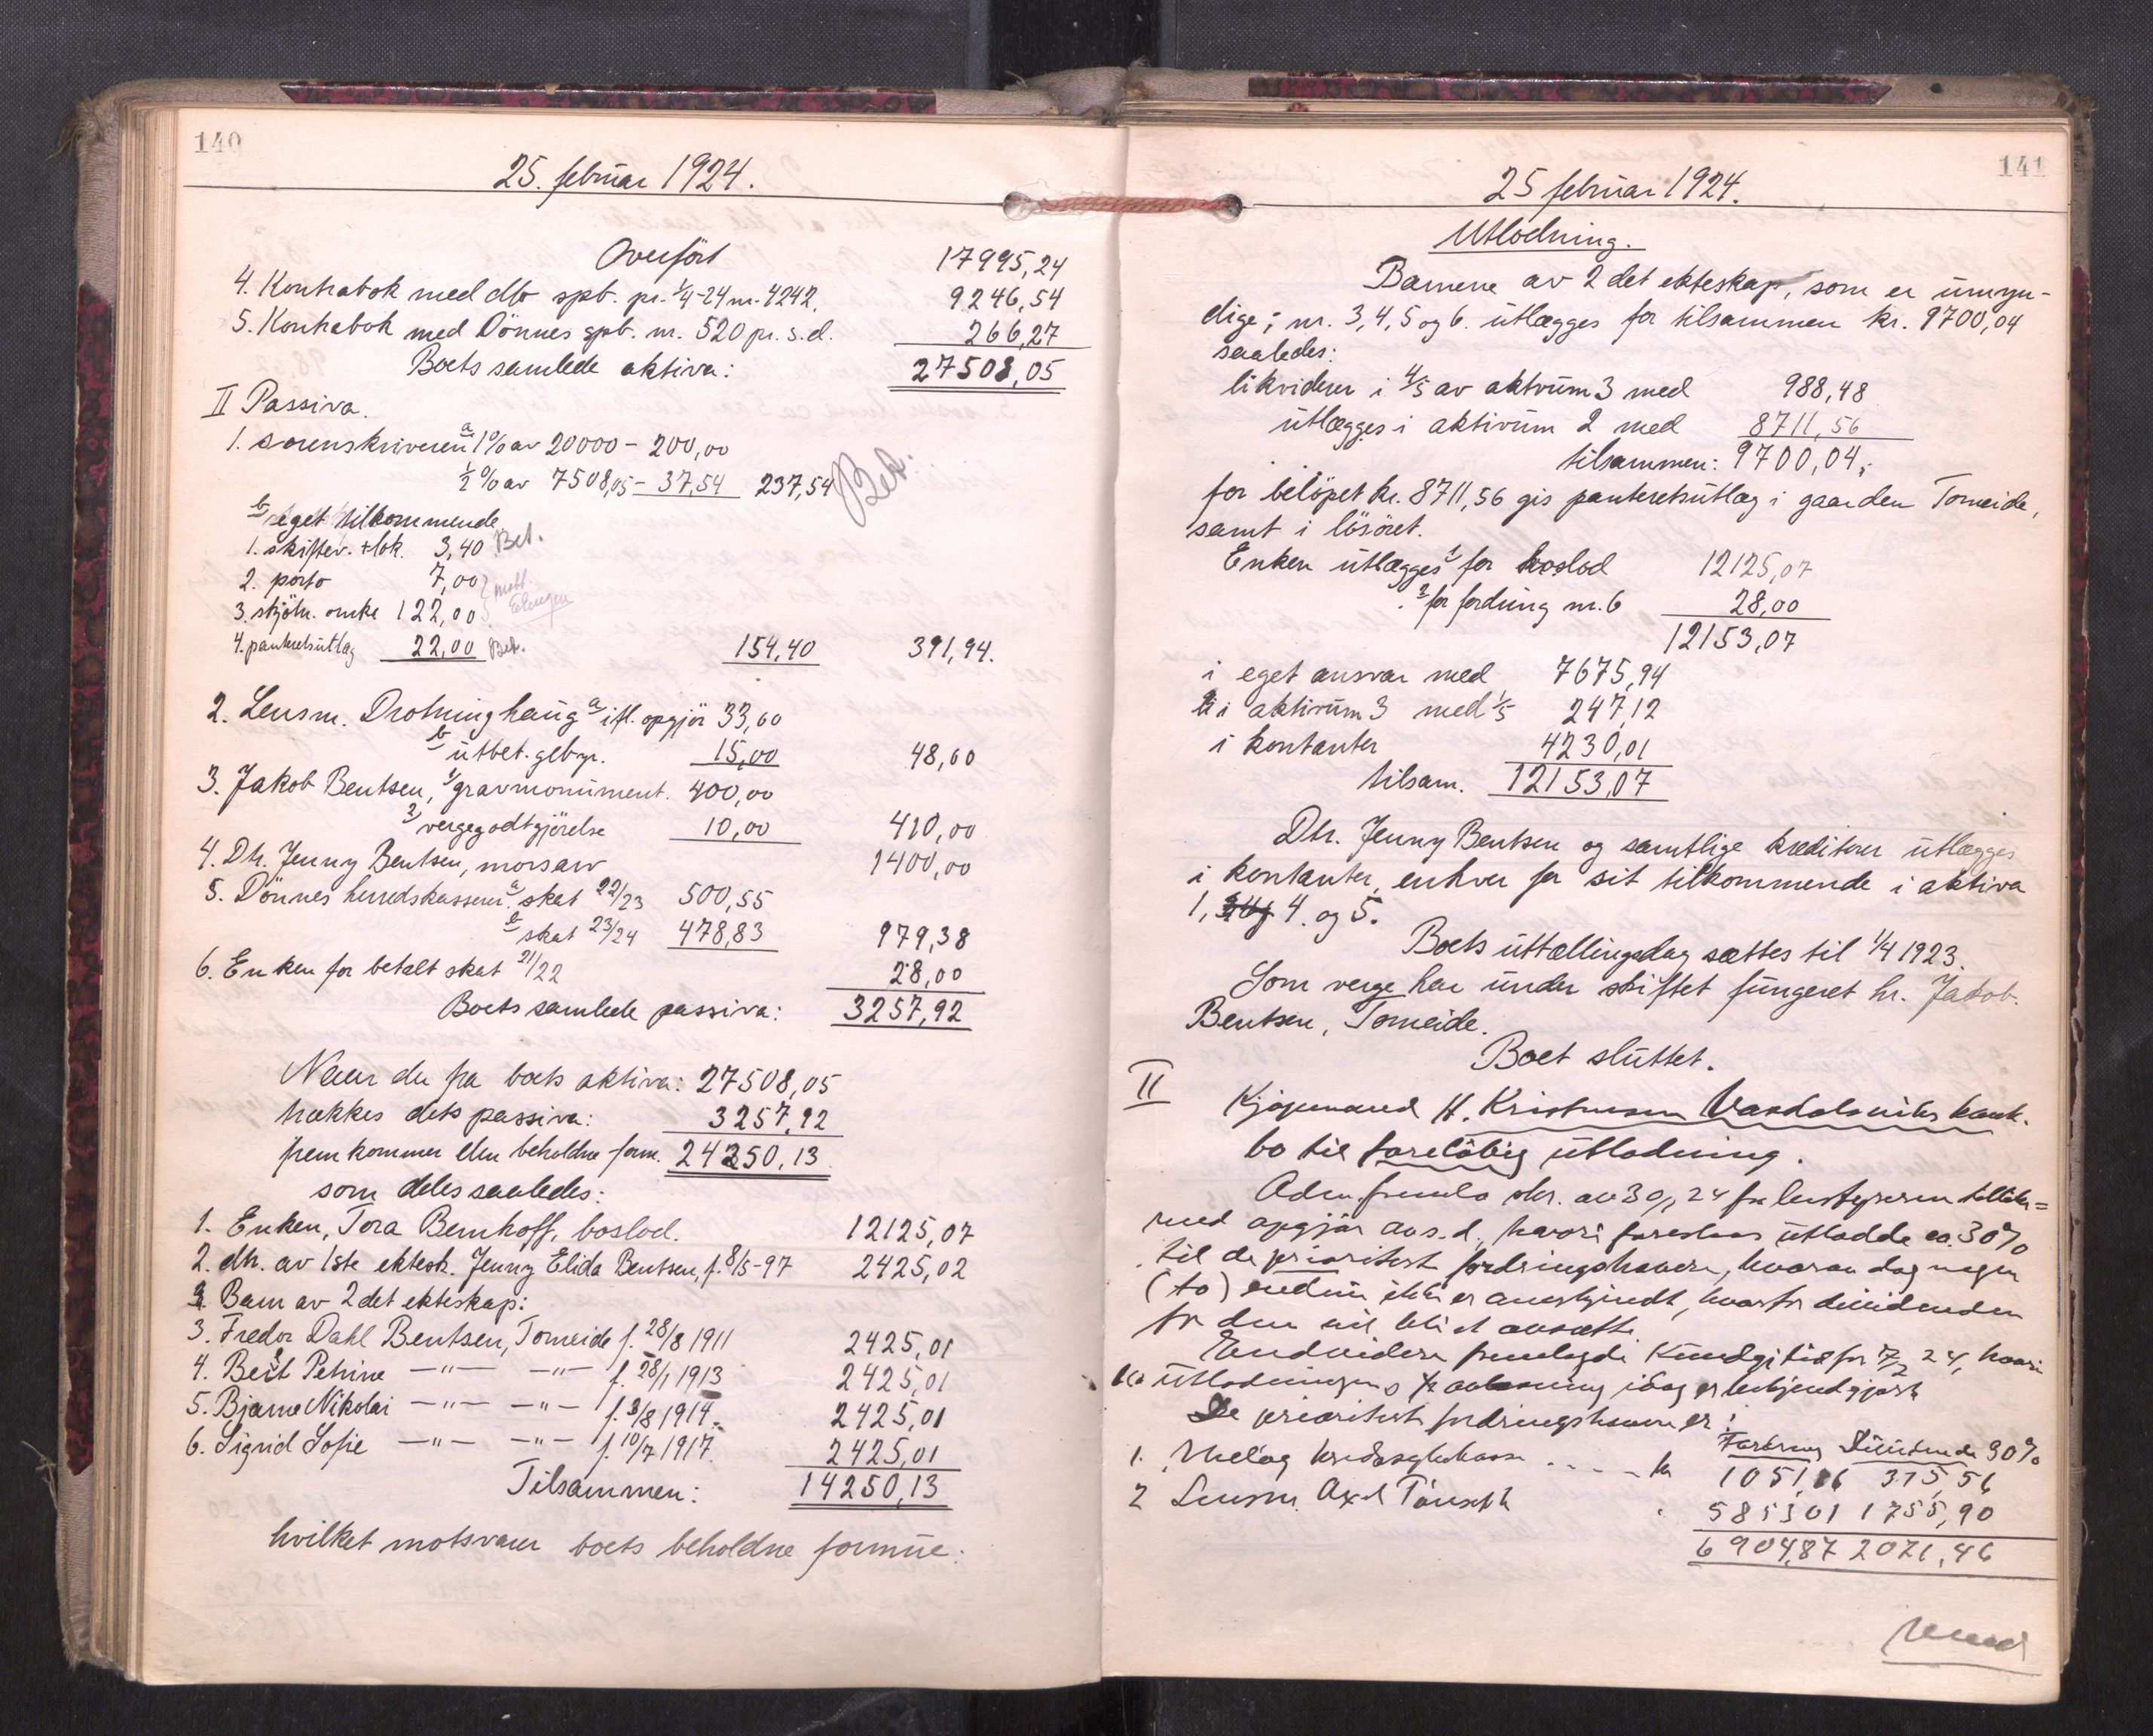 140
25. februar 1924.
Overført 17995,24
4. Kontrabok med dto spb. pr. 1/4-24 nr. 4242. 9246,54
5. Kontrabok med Dönnes spb. nr. 520 pr. s.d. 266,27
Boets samlede aktiva: 27508,05
II Passiva.
1. sorenskriveren a 1% av 20000 - 200,00
1/2 % av 7508,05 - 37,54 237,54 Bet.
b eget tilkommende
1. skifter. + lok. 3,40 Bet.
2. porto 7,00
3. skjöte. omke 122,00
4. panteretsutlæg 22,00 Bet. 154,40 391,94.
2. Lensm. Drotninghaug a ifl. opgjör 33,60
b utbet. gebyr. 15,00 48,60
3. Jakob Bentsen, 1/ gravmonument. 400,00
2/ vergegodtgjörelse 10,00 410,00
4. Dtr. Jenny Bentsen, morsarv 1400,00
5. Dönnes herredskasserer a. skat 22/23 500,55
b skat 23/24 478,83 979,38
6. Enken for betalt skat 21/22 28,00
Boets samlede passiva: 3257,92
Naar der fra boets aktiva: 27508,05
trækkes dets passiva: 3257,92
fremkommer den beholdne form. 24250,13
som deles saaledes:
1. Enken, Tora Bernhoff, boslod. 12125,07
2. dtr. av 1ste ektesk. Jenny Elida Bentsen, f. 8/5-97 2425,02
Barn av 2det ekteskap:
3. Fredor Dahl Bentsen, Tomeide f. 28/8 1911 2425,01
4. Berit Petrine —"— —"— f. 28/1 1913 2425,01
5. Bjarne Nikolai —"— —"— f. 3/8 1914. 2425,01
6. Sigrid Sofie —"— —"— f. 10/7 1917. 2425,01
Tilsammen: 14250,13
hvilket motsvarer boets beholdne formue.
141
25 februar 1924.
Utlodning.
Barnene av 2det ekteskap, som er umyn-
dige; nr. 3, 4, 5 og 6. utlægges for tilsammen kr. 9700,04
saaledes:
likviderer i 4/5 av aktivum 3 med 988,48
utlægges i aktivum 2 med 8711,56
tilsammen: 9700,04;
for belöpet kr. 8711,56 gis panteretsutlæg i gaarden Tomeide,
samt i lösöret.
Enken utlægges 1/ for boslod 12125,07
2/ for fordring nr. 6 28,00
12153,07
i eget ansvar med 7675,94
i aktivum 3 med 1/5 247,12
i kontanter 4230,01
tilsam. 12153,07
Dtr. Jenny Bentsen og samtlige kreditorer utlægges
i kontanter, enhver for sit tilkommende i aktiva
1, 4. og 5.
Boets uttællingsdag sættes til 1/4 1923.
Som verge har under skiftet fungeret hr. Jakob
Bentsen, Tomeide.
Boet sluttet.
II Kjøpmand H. Kristensen Vandalsvikes konk.
bo til foreløbig utlodning.
Adm. fremla skr. av 30/1 24 fra bestyreren tillike-
med opgjør av s.d., hvori foreslaas utlodde ca. 30%
til de prioritert fordringshavere, hvorav dog nogen
(to) endnu ikke er anerkjendt, hvorfor dividenden
for dem vil bli at avsætte.
Endvidere fremlagdes Kundgj. tid. for 7/2 24, hvori
utlodningens avlæsning idag er bekjendtgjort
De prioriterte fordringshavere er:
Fordring Dividende 30%
1. Meløy herredsskatkasse . . . . kr 1051,86 315,56
2 Lensm. Axel Tønseth 5853,01 1755,90
6904,87 2071,46